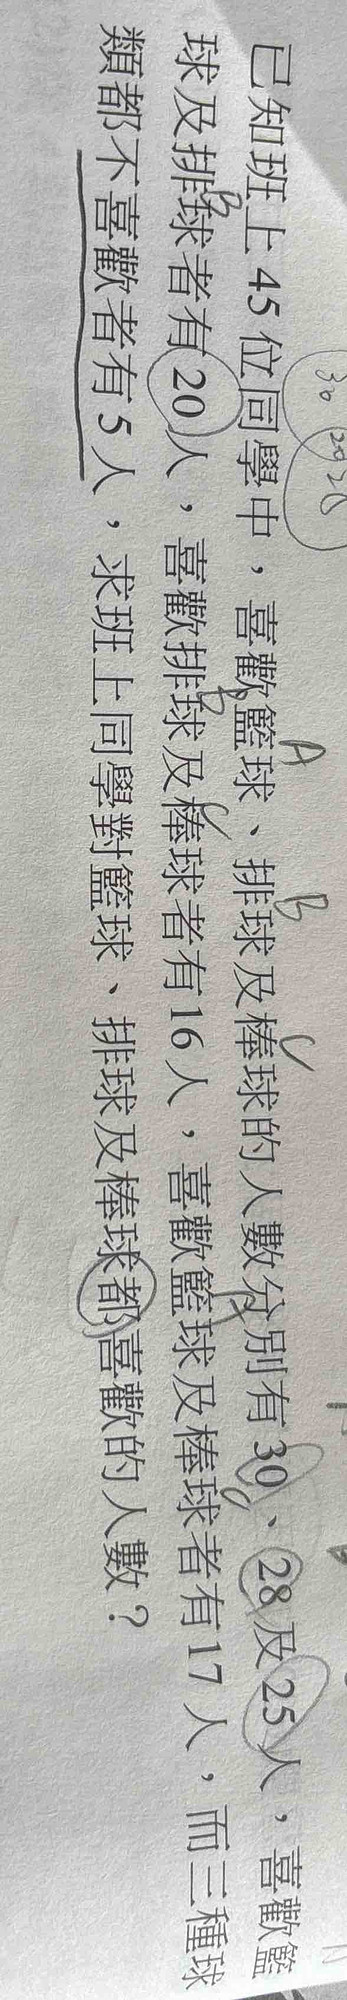 已知班上45位同學中，喜歡籃球、排球及棒球的人數分別有30、28及25人，喜歡籃
球及排球者有20人，喜歡排球及棒球者有16人，喜歡籃球及棒球者有17人，而三種球
類都不喜歡者有5人，求班上同學對籃球、排球及棒球都喜歡的人數？
30 20 28
A
B
C
B
B
C
A
C